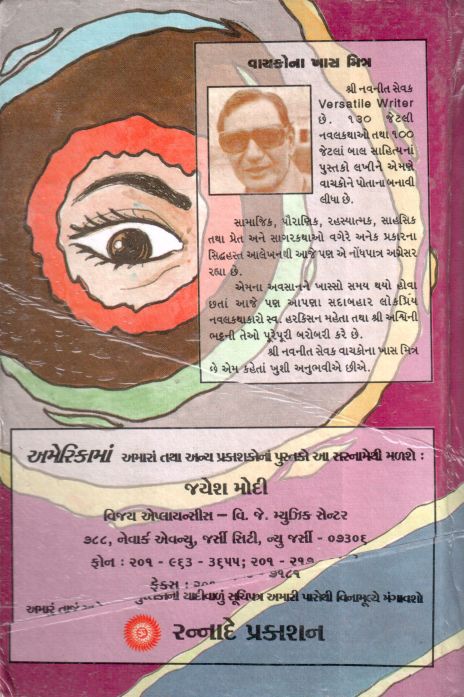 વાચકોના ખાસ મિત્ર
શ્રી નવનીત સેવક
Versatile Writer
છે. ૧૩૦ જેટલી
નવલકથાઓ તથા ૧૦૦
જેટલાં બાલ સાહિત્યનાં
પુસ્તકો લખીને એમણે
વાચકોને પોતાના બનાવી
લીધા છે.
સામાજિક, પૌરાણિક, રહસ્યાત્મક, સાહસિક
તથા પ્રેત અને સાગરકથાઓ વગેરે અનેક પ્રકારના
સિદ્ધહસ્ત આલેખનથી આજે પણ એ નોંધપાત્ર અગ્રેસર
રહ્યા છે.
એમના અવસાનને ખાસ્સો સમય થયો હોવા
છતાં આજે પણ આપણા સદાબહાર લોકપ્રિય
નવલકથાકારો સ્વ. હરકિસન મહેતા તથા શ્રી અશ્વિની
ભટ્ટની તેઓ પૂરેપૂરી બરોબરી કરે છે.
શ્રી નવનીત સેવક વાચકોના ખાસ મિત્ર
છે એમ કહેતાં ખુશી અનુભવીએ છીએ.
અમેરિકામાં અમારાં તથા અન્ય પ્રકાશકોનાં પુસ્તકો આ સરનામેથી મળશે :
જયેશ મોદી
વિજય એપ્લાયન્સીસ – વિ. જે. મ્યુઝિક સેન્ટર
૭૮૮, નેવાર્ક એવન્યુ, જર્સી સિટી, ન્યુ જર્સી - ૦૭૩૦૬
ફોન : ૨૦૧ - ૯૬૩ - ૩૬૫૫; ૨૦૧ - ૨૧૭
ફેક્સ : ૨૦૧ ૭૧૮૧
અમારું યાદીવાળું સૂચિપત્ર અમારી પાસેથી વિનામૂલ્યે મંગાવશો
રન્નાદે પ્રકાશન